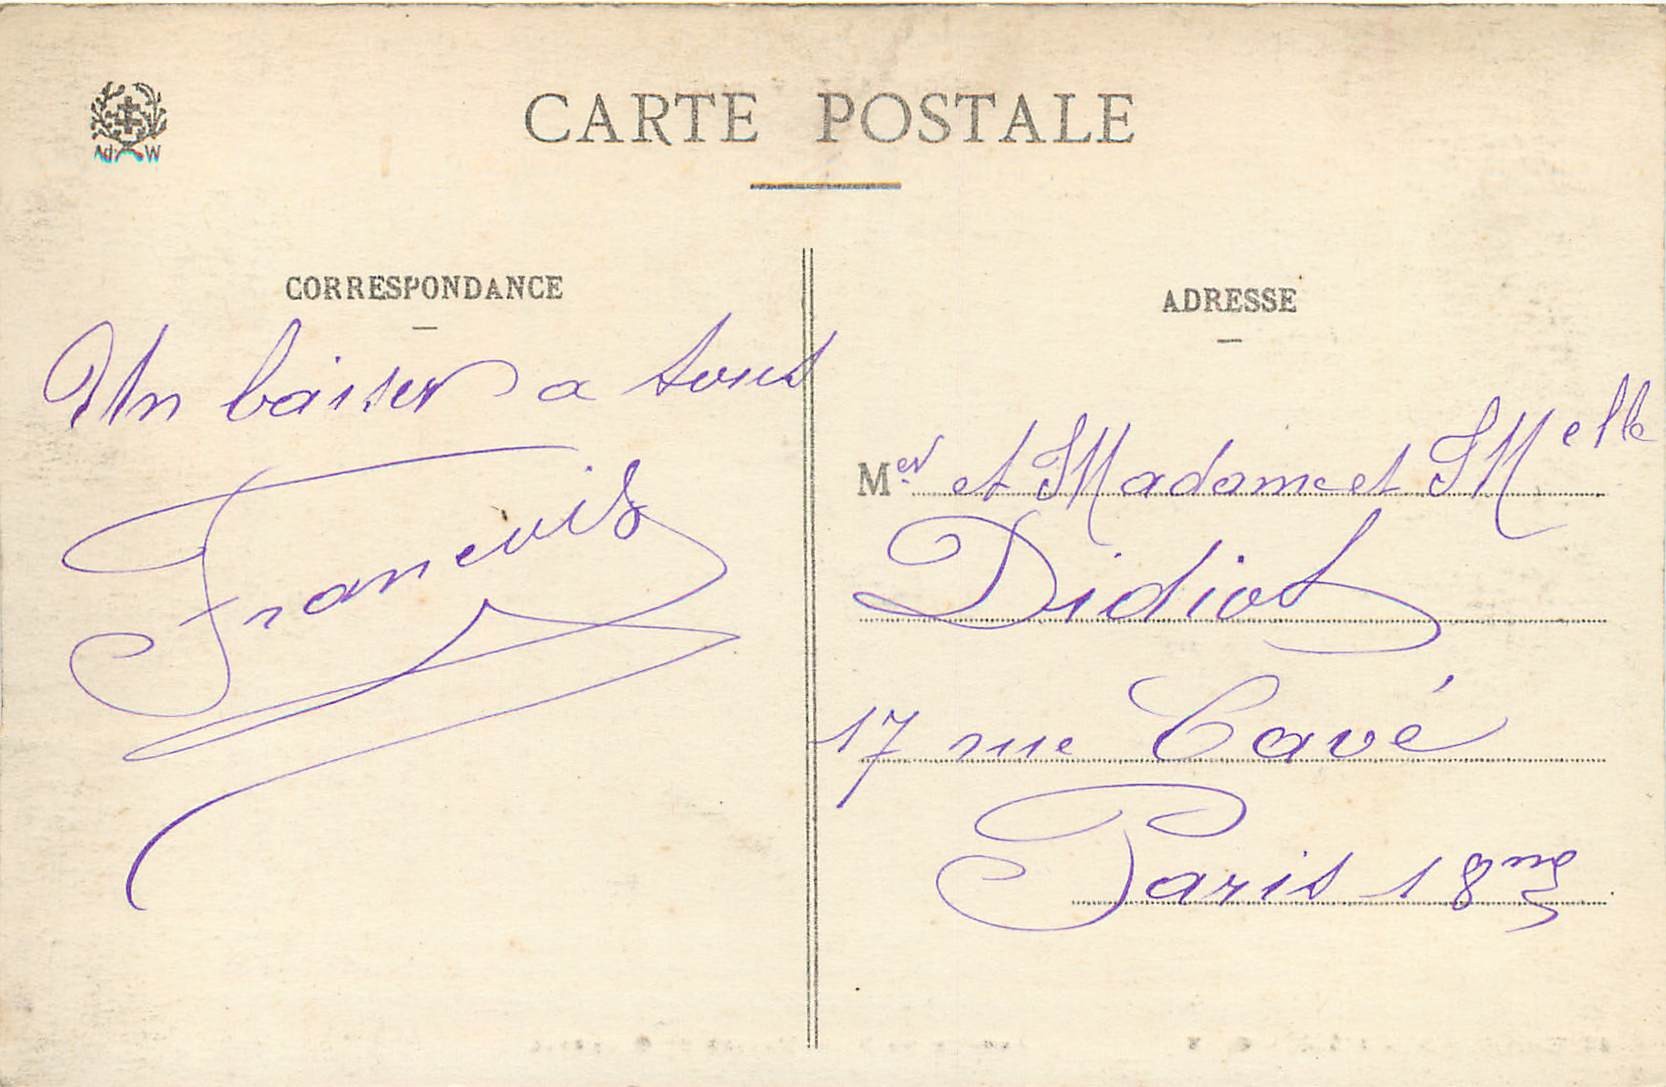 CARTE POSTALE
Ad. W
CORRESPONDANCE
Un baiser a tous
Francois
ADRESSE
Mer et Madame et Melle
Didiot
17 rue Cavé
Paris 18me